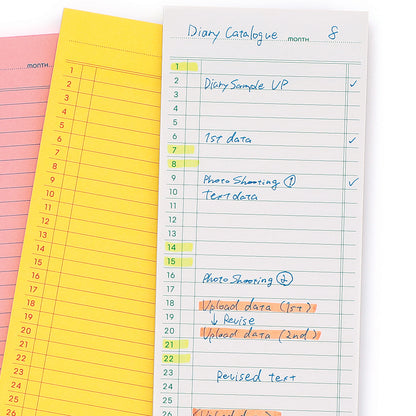 Diary Catalogue MONTH 8
1
2 Diary Sample UP ✓
3
4
5
6 1st data ✓
7
8
9 Photo Shooting ① ✓
10 Text data
11
12
13
14
15
16 Photo Shooting ②
17
18 Upload data (1st)
19 ↓ Revise
20 Upload data (2nd)
21
22
23 Revised text
24
25
26 Upload data
MONTH
1
2
3
4
5
6
7
8
9
10
11
12
13
14
15
16
17
18
19
20
21
22
23
24
25
26
MONTH